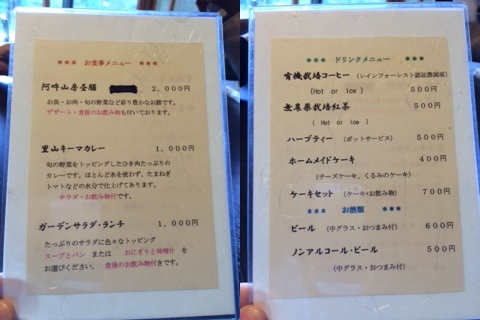 *** お食事メニュー ***
阿吽山房昼膳 2,000円
お魚・お肉・旬の野菜など彩り豊かなお膳です。
デザート・食後のお飲み物も付いております。
里山キーマカレー 1,000円
旬の野菜をトッピングしたひき肉たっぷりの
カレーです。ほとんど水を使わず、たまねぎ
トマトなどの水分で仕上げてあります。
サラダ・お飲み物付です。
ガーデンサラダ・ランチ 1,000円
たっぷりのサラダに色々なトッピング
スープとパン または おにぎりと味噌汁 を
お選びください。 食後のお飲み物付きです。
*** ドリンクメニュー ***
有機栽培コーヒー (レインフォーレスト認証農園産)
(Hot or Ice) 500円
無農薬栽培紅茶 500円
( Hot or Ice )
ハーブティー (ポットサービス) 500円
ホームメイドケーキ 400円
(チーズケーキ、くるみのケーキ)
ケーキセット (ケーキ+お飲み物) 700円
*** お酒類 ***
ビール (中グラス・おつまみ付) 600円
ノンアルコール・ビール 500円
(中グラス・おつまみ付)